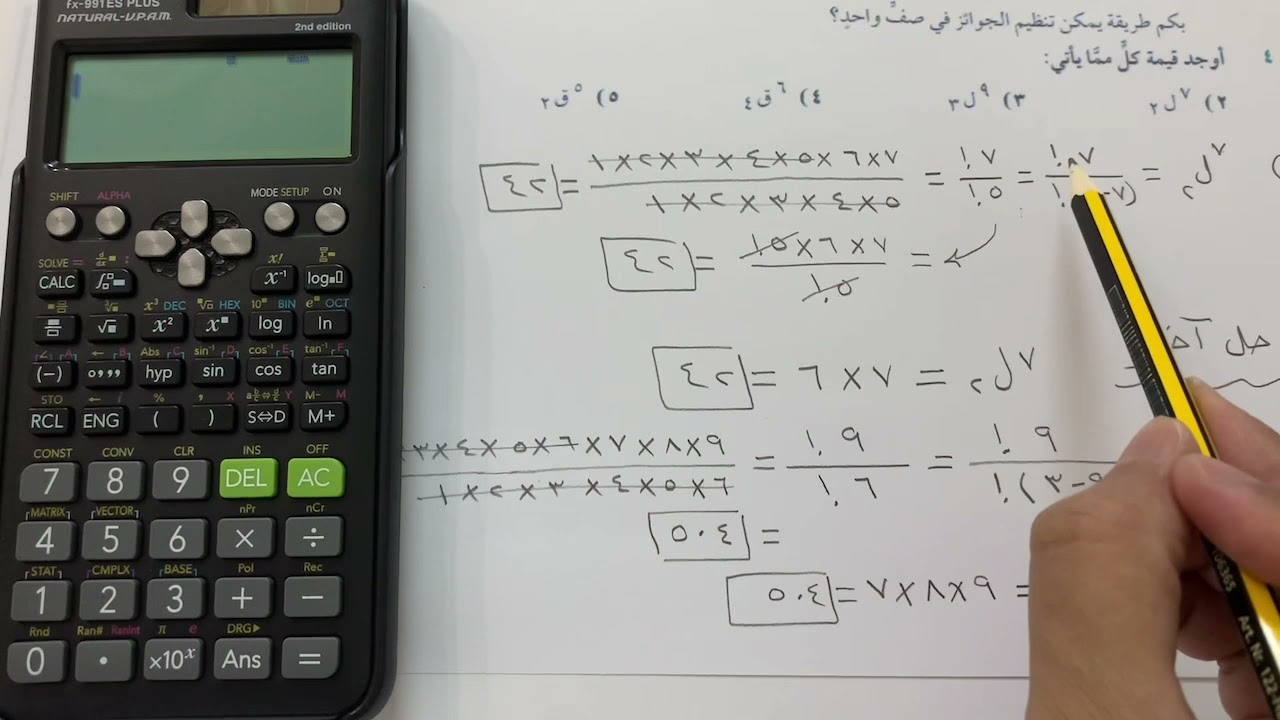 بكم طريقة يمكن تنظيم الجوائز في صفٍّ واحدٍ؟
٤ أوجد قيمة كلٍّ ممَّا يأتي:
٢) ٧ل٢ ٣) ٩ل٣ ٤) ٦ق٤ ٥) ٥ق٢
٧ل٢ = = ٧!/٥! = ٧×٦×٥×٤×٣×٢×١/٥×٤×٣×٢×١ = ٤٢
= ٧×٦×٥!/٥! = ٤٢
حل
٧ل٢ = ٧×٦ = ٤٢
٩!/(٩-٣)! = ٩!/٦! = ٩×٨×٧×٦×٥×٤×٣/٦×٥×٤×٣×٢×١
= ٥٠٤
= ٩×٨×٧ = ٥٠٤
fx-991ES PLUS
NATURAL-V.P.A.M.
2nd edition
SHIFT ALPHA MODE SETUP ON
SOLVE = d/dx = : x! Σ
CALC ∫ x⁻¹ log
x³ DEC ³√ HEX 10ˣ BIN eˣ OCT
√ x² xˣ log ln
A ← B Abs C sin⁻¹ D cos⁻¹ E tan⁻¹ F
(−) °’” hyp sin cos tan
STO ← i % , X Y M− M
RCL ENG ( ) S⇔D M+
CONST CONV CLR INS OFF
7 8 9 DEL AC
MATRIX VECTOR nPr nCr
4 5 6 × ÷
STAT CMPLX BASE Pol Rec
1 2 3 + −
Rnd Ran# RanInt π e DRG▶
0 · ×10ˣ Ans =